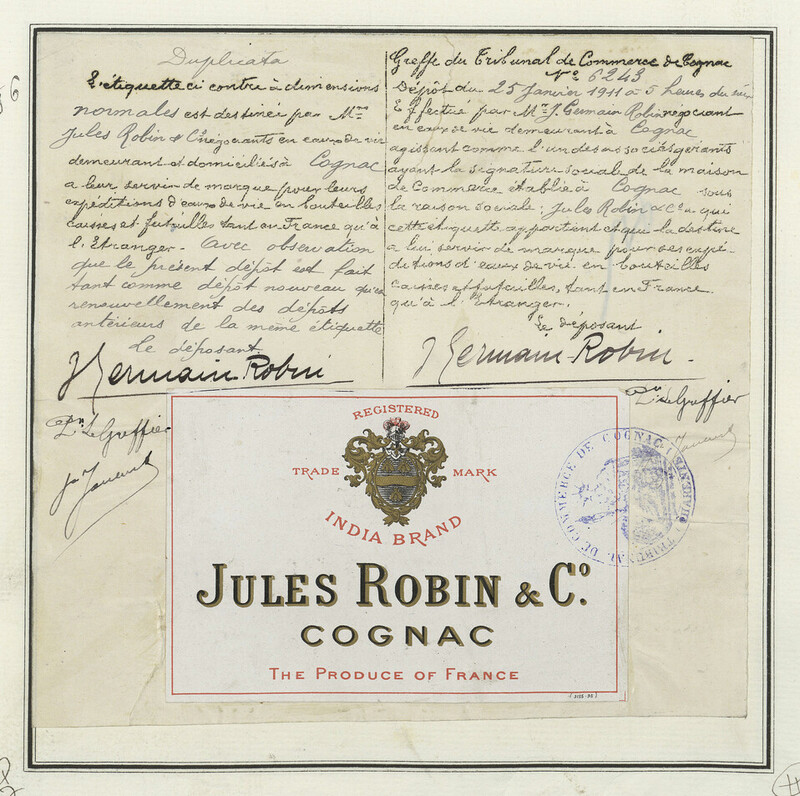 Duplicata
L'étiquette ci contre à dimensions
normales est destinée par Mrs
Jules Robin & Cie négociants en eaux de vie
demeurant et domiciliés à Cognac
a leur servir de marque pour leurs
expéditions d'eaux de vie en bouteilles
caisses et futailles tant en France qu'à
l'Etranger. Avec observation
que le présent dépôt est fait
tant comme dépôt nouveau qu'en
renouvellement des dépôts
antérieurs de la même étiquette
Le déposant
J Germain-Robin
Pr Le Greffier
Greffe du Tribunal de Commerce de Cognac
No 6243
Dépôt du 25 Janvier 1911 à 5 heures du soir
Effectué par Mr J. Germain Robin négociant
en eaux de vie demeurant à Cognac
agissant comme l'un des associés gérants
ayant la signature sociale de la maison
de Commerce établie à Cognac sous
la raison sociale: Jules Robin & Co à qui
cette étiquette appartient et qui la destine
a lui servir de marque pour ses expé-
ditions d'eaux de vie en bouteilles
caisses et futailles, tant en France
qu'à l'Etranger.
Le déposant
J Germain-Robin
Pr Le Greffier
REGISTERED
TRADE MARK
INDIA BRAND
JULES ROBIN & Co.
COGNAC
THE PRODUCE OF FRANCE
TRIBUNAL DE COMMERCE DE COGNAC